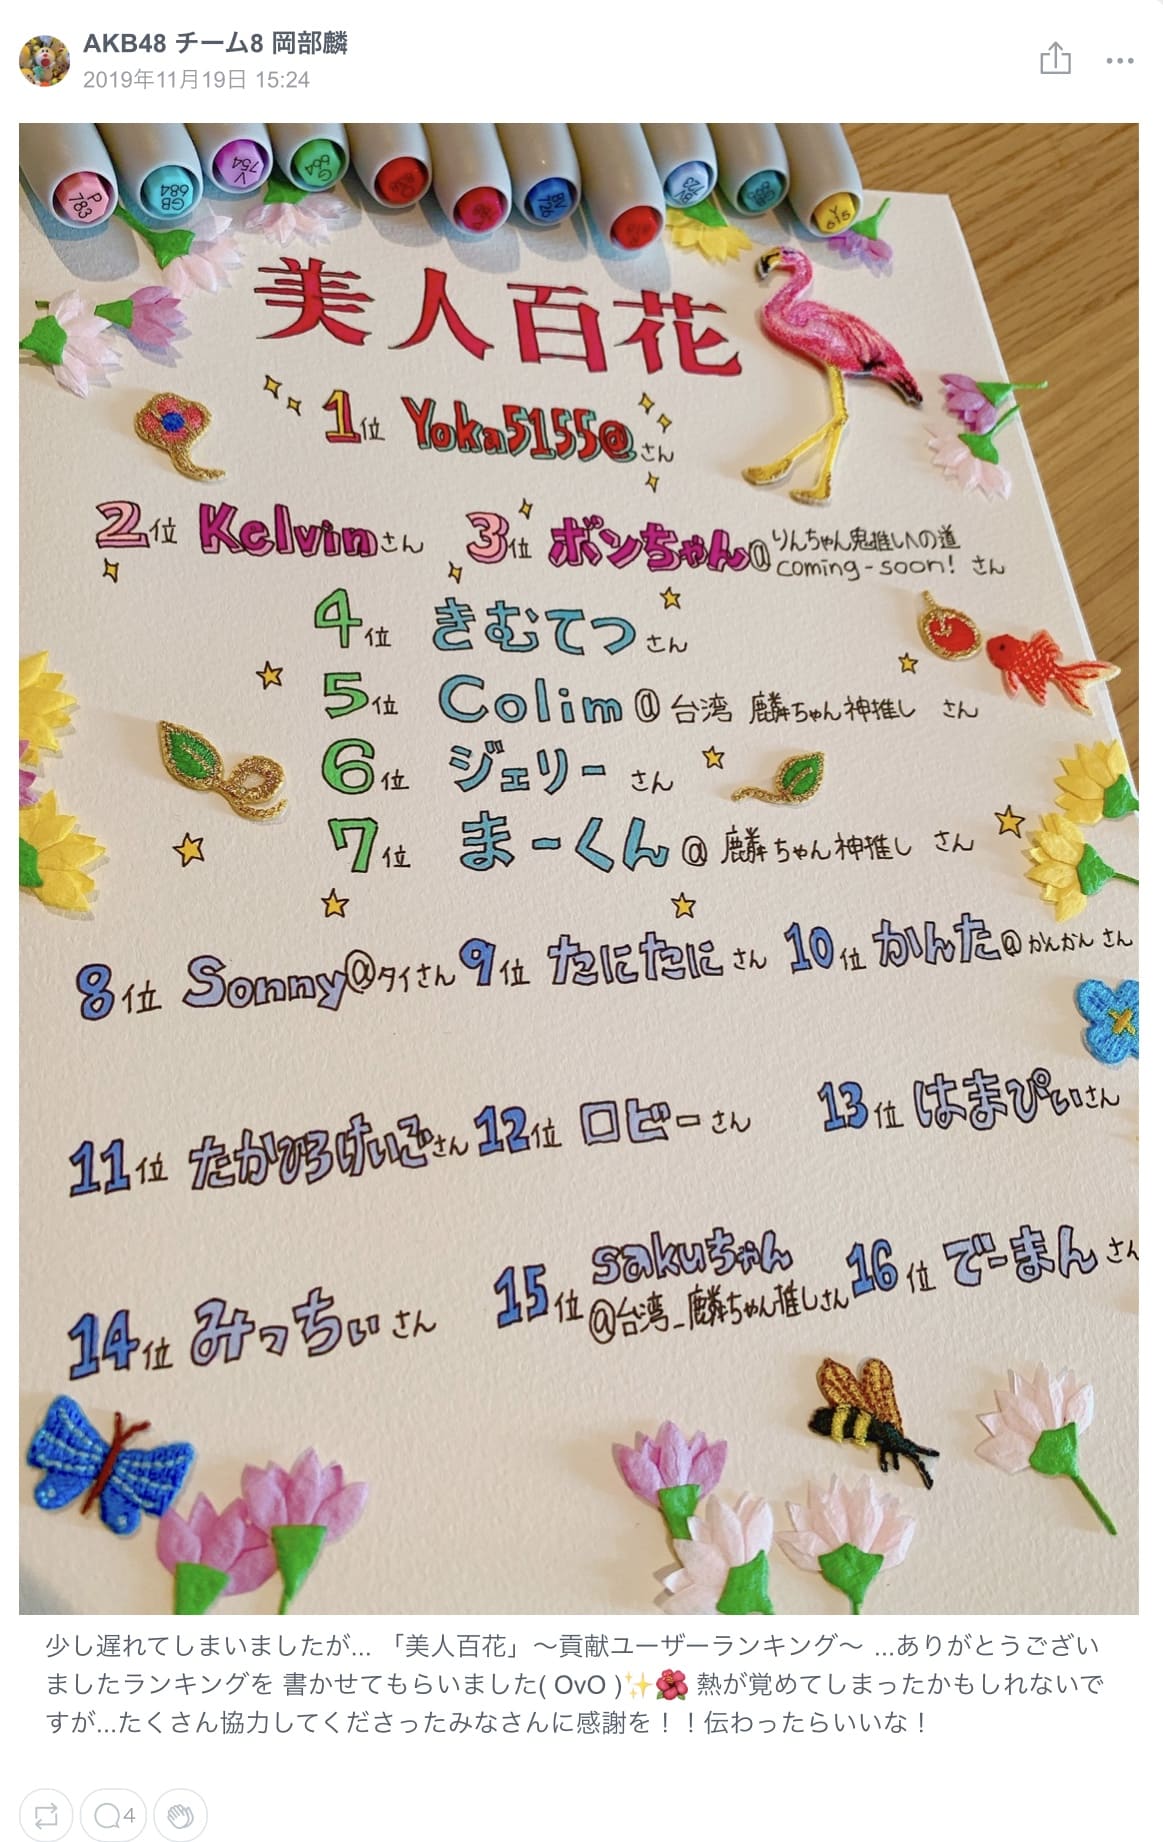 AKB48 チーム8 岡部麟
2019年11月19日 15:24
P 783
GB 684
V 754
G 664
BV 726
Y 615
美人百花
1位 Yoka5155@さん
2位 Kelvinさん 3位 ボンちゃん@りんちゃん鬼推しへの道
coming-soon! さん
4位 きむてつさん
5位 Colim@台湾 麟ちゃん神推し さん
6位 ジェリー さん
7位 まーくん@麟ちゃん神推し さん
8位 Sonny@タイさん 9位 たにたに さん 10位 かんた@かんかん さん
11位 たかひろけいごさん 12位 ロビーさん 13位 はまぴぃさん
14位 みっちぃさん 15位 sakuちゃん 16位 でーまん さん
@台湾_麟ちゃん推しさん
少し遅れてしまいましたが... 「美人百花」〜貢献ユーザーランキング〜 ...ありがとうござい
ましたランキングを 書かせてもらいました( OvO )✨🌺 熱が覚めてしまったかもしれないで
すが...たくさん協力してくださったみなさんに感謝を！！伝わったらいいな！
4